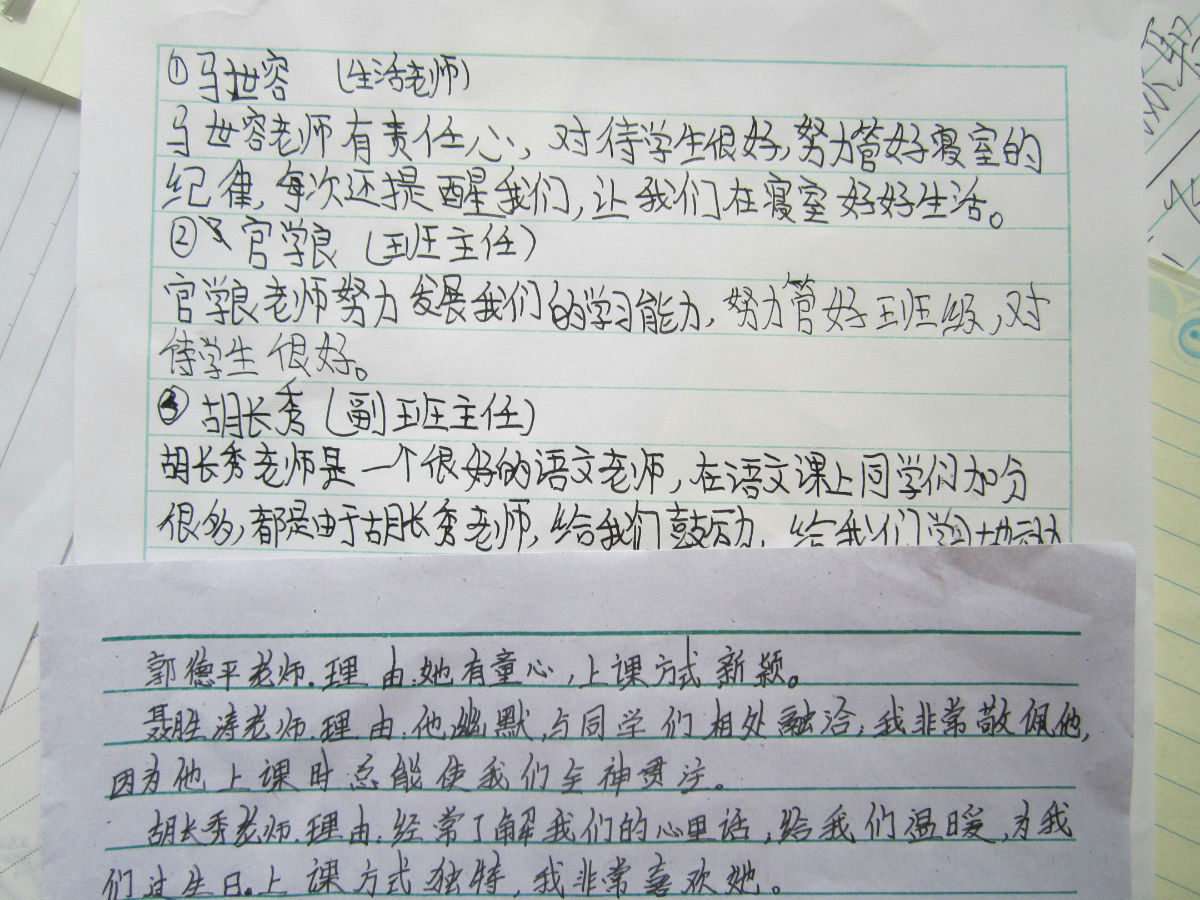 ①马世容 (生活老师)
马世容老师有责任心,对待学生很好,努力管好寝室的
纪律,每次还提醒我们,让我们在寝室好好生活。
② 官学良 (班主任)
官学良老师努力发展我们的学习能力,努力管好班级,对
待学生很好。
③ 胡长秀(副班主任)
胡长秀老师是一个很好的语文老师,在语文课上同学们加分
很多,都是由于胡长秀老师,给我们鼓励,给我们学习
郭德平老师.理由:她有童心,上课方式新颖。
聂胜涛老师.理由:他幽默,与同学们相处融洽;我非常敬佩他,
因为他上课时总能使我们全神贯注。
胡长秀老师.理由:经常了解我们的心里话,给我们温暖,为我
们过生日.上课方式独特,我非常喜欢她。